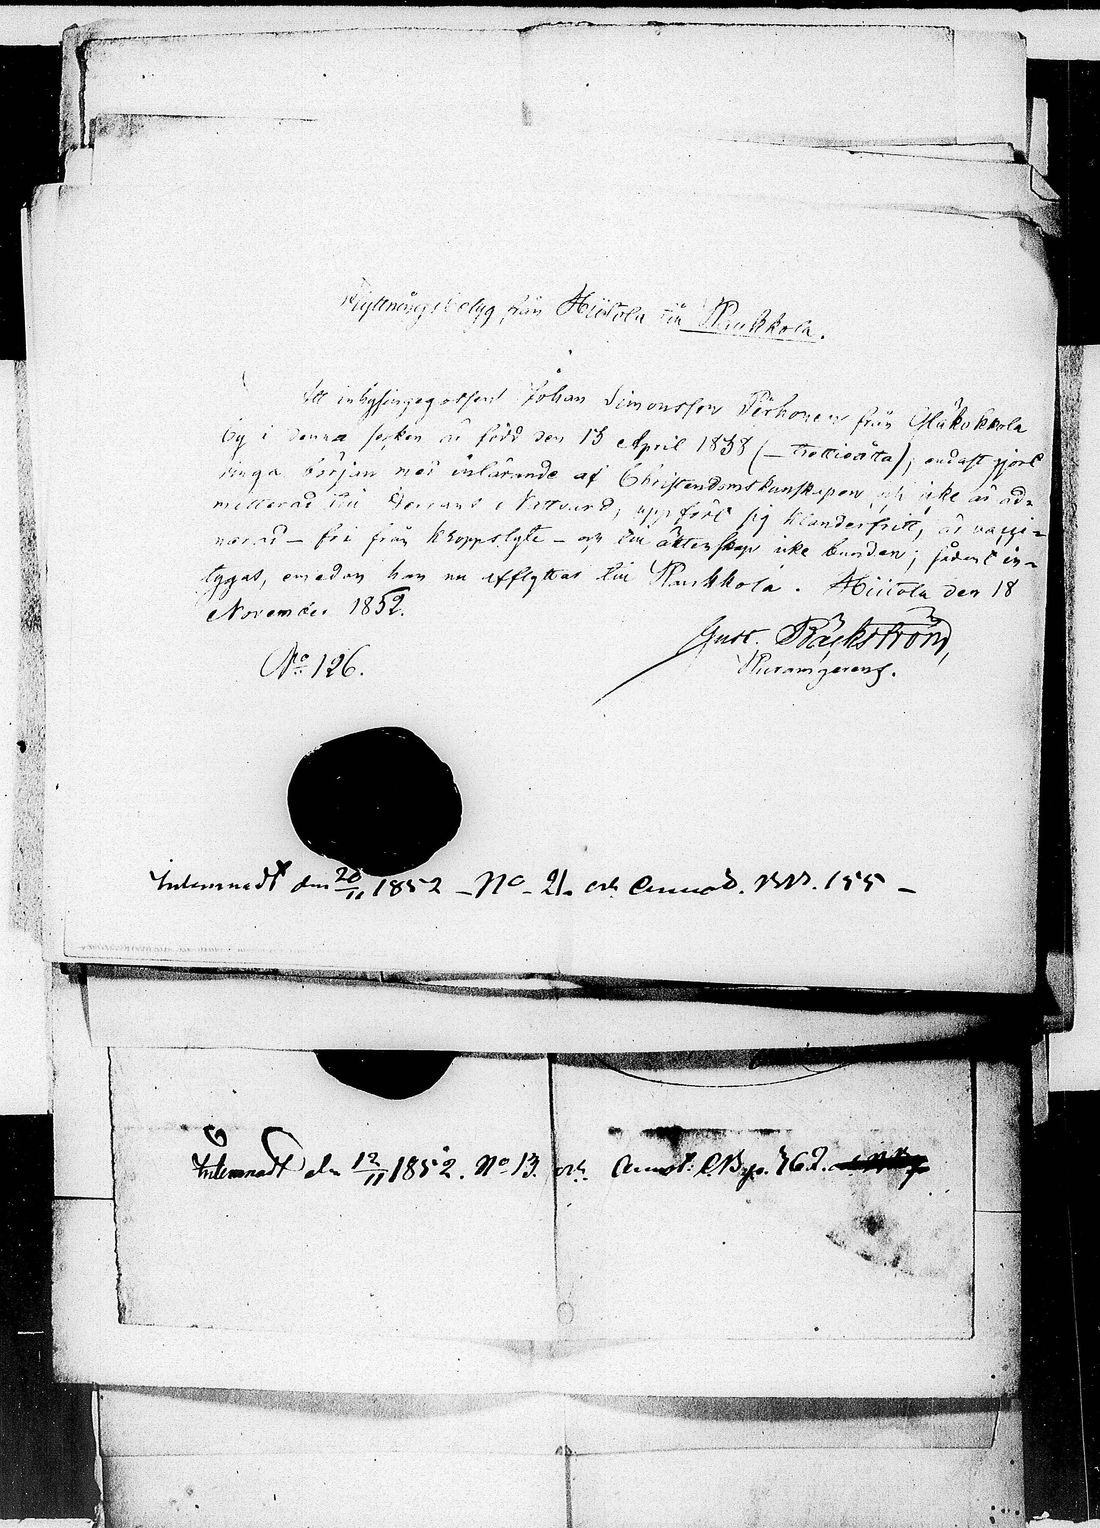 Flyttningsbetyg från Hiitola till Raukkola.
Att inhysingegossen Johan Simonsson Pärhonen från Haukkola
by i denna socken är född den 13 April 1838 (— trettioåtta); endast gjort
ringa början med inlärande af Christendomskunskapen och icke är ad-
mitterad till Herrans Nattvard, uppfört sig klanderfritt, är vacci-
nerad — fri från kroppslyte — och till äktenskap icke bunden; sådant in-
tygas, emedan han nu afflyttar till Raukkola. Hiitola den 18
November 1852.
Gust. Bäckström,
No 126.
Inlemnadt den 20/11 1852 — No — 21. och Annot. 155 —
Inlemnadt den 12/11 1852. No 13. och Annot: 762.